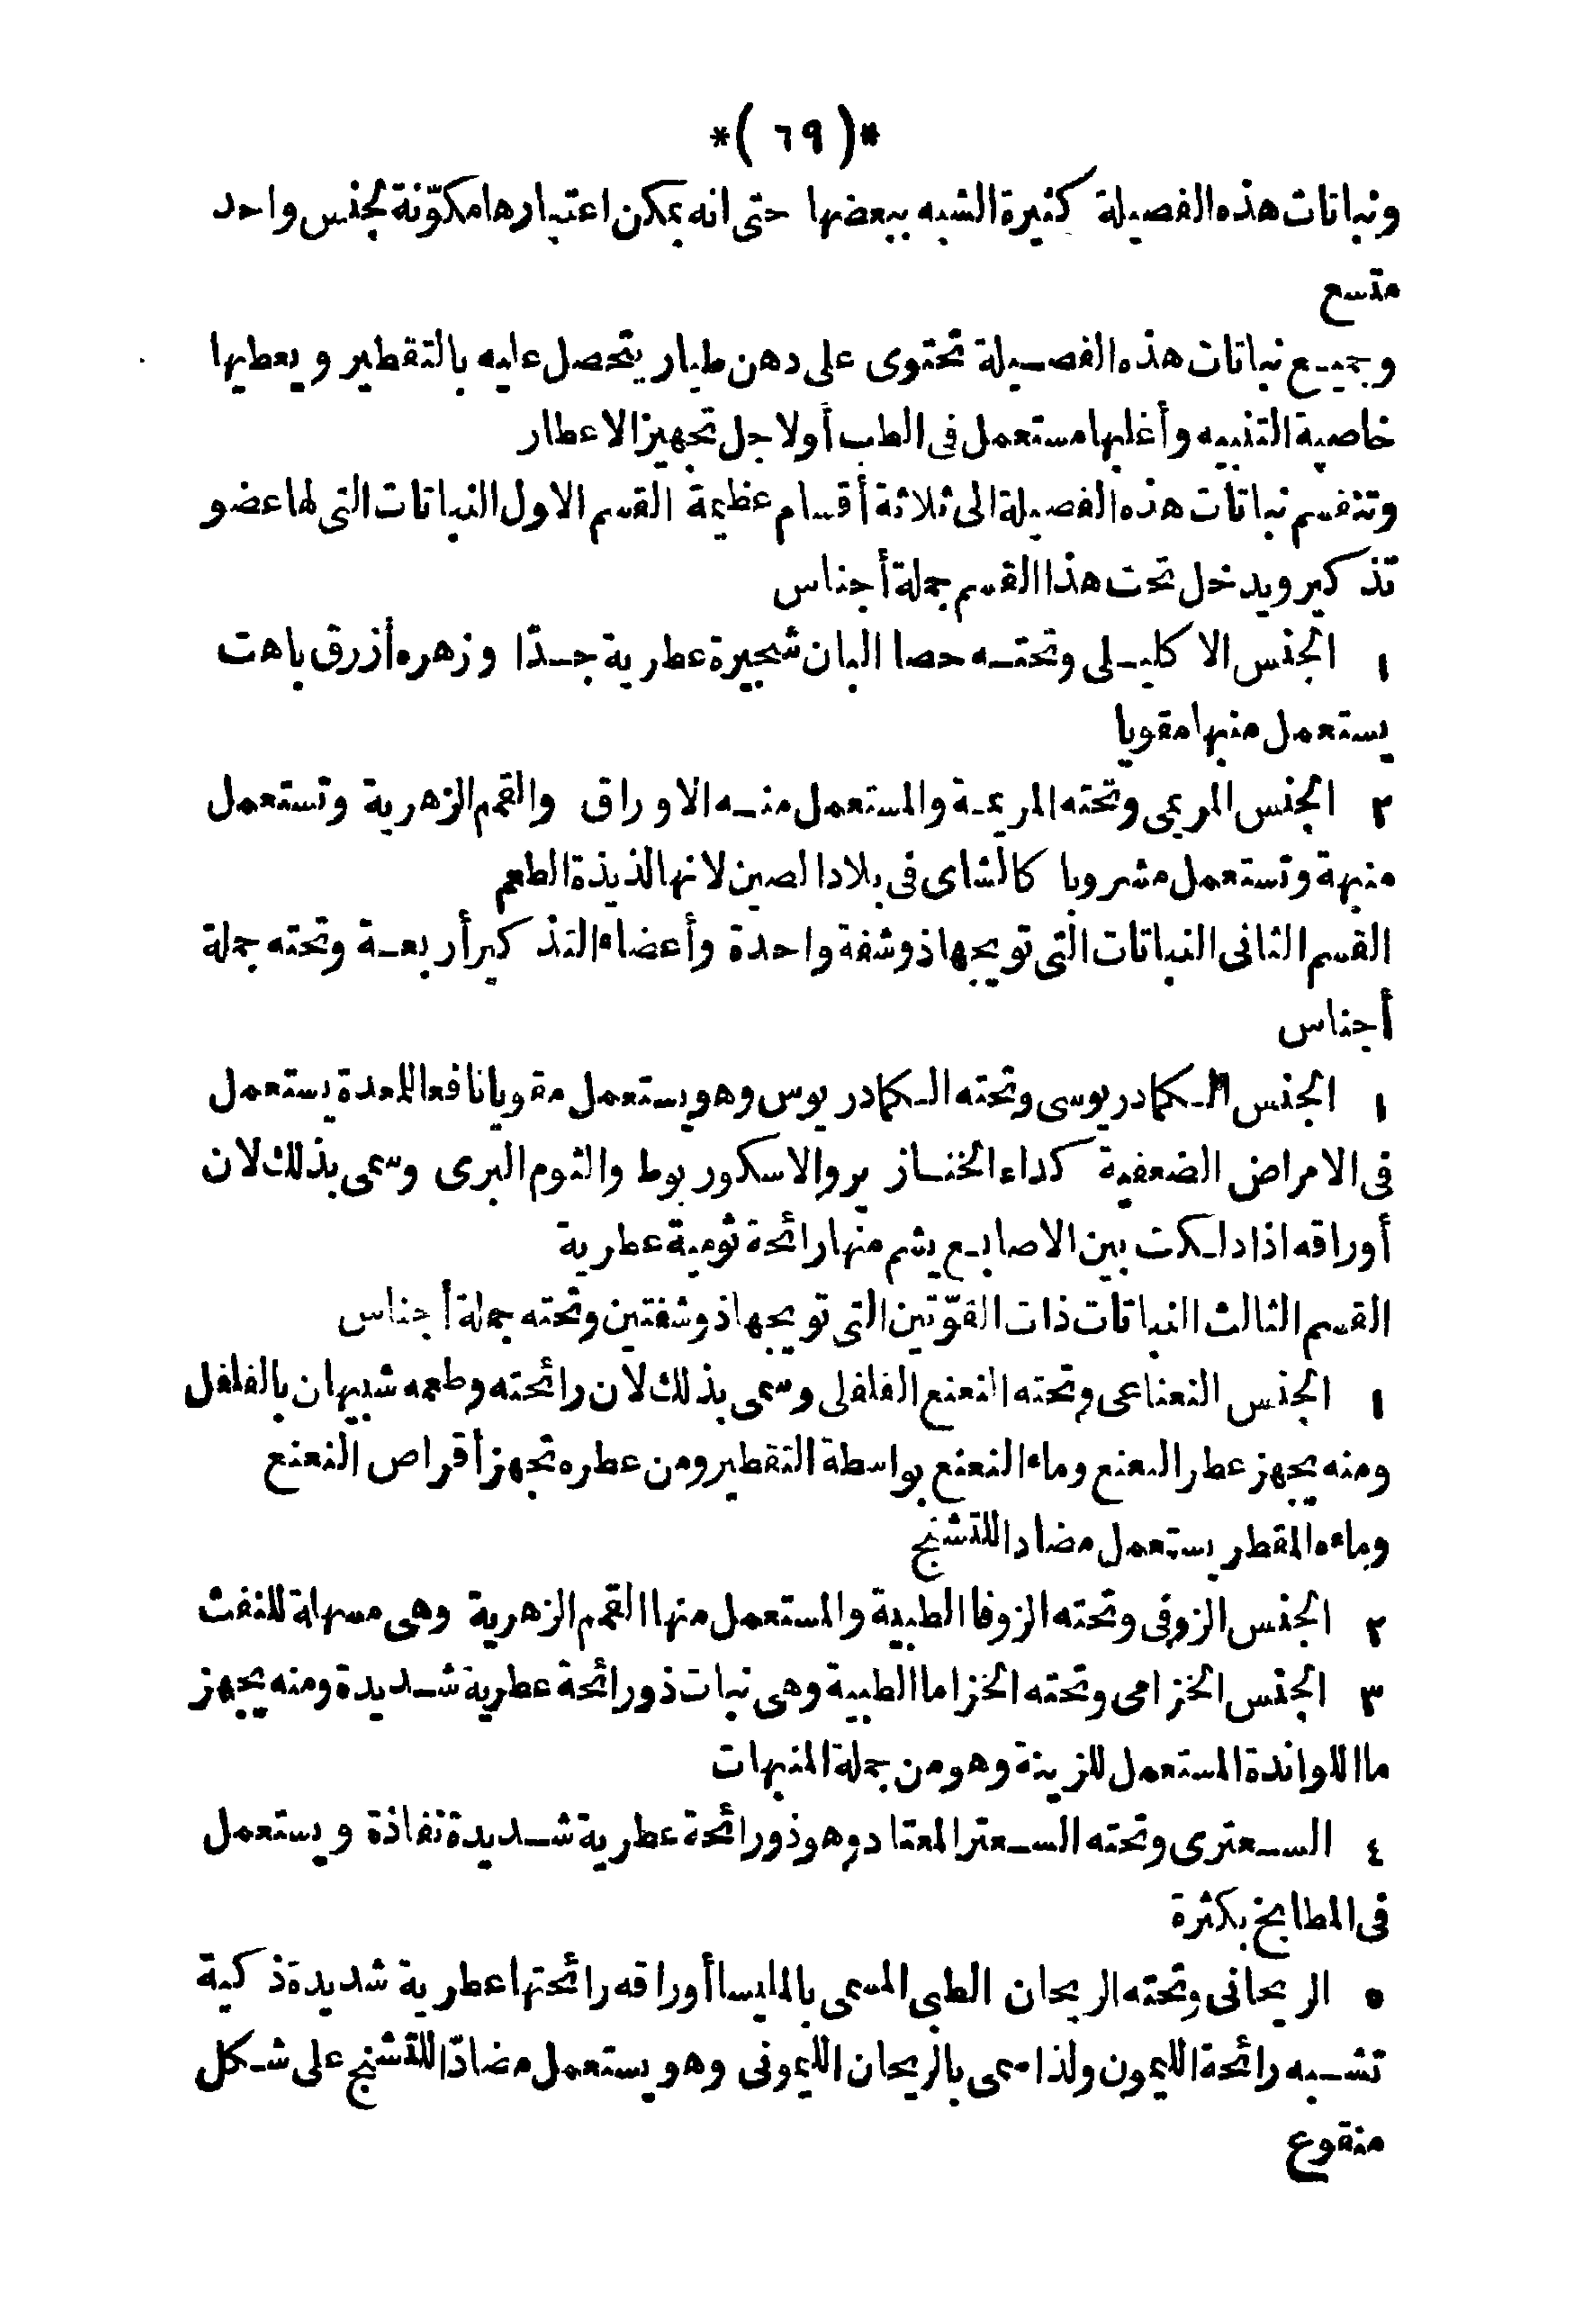 *( ٦٩ )*
ونباتات هذه الفصيلة كثيرة الشبه ببعضها حتى انه يمكن اعتبارها مكوّنة لجنس واحد
متسع
وجميع نباتات هذه الفصيلة تحتوى على دهن طيار يتحصل عليه بالتقطير ويعطيها
خاصية التنبيه وأغلبها مستعمل فى الطب أولاجل تجهيز الاعطار
وتنقسم نباتات هذه الفصيلة الى ثلاثة أقسام عظيمة القسم الاول النباتات التى لها عضو
تذكير ويدخل تحت هذا القسم جملة أجناس
١ الجنس الاكليلى وتحته حصا البان شجيرة عطرية جدّا وزهره أزرق باهت
يستعمل منبها مقويا
٢ الجنس المريمى وتحته المريمة والمستعمل منه الاوراق والقمم الزهرية وتستعمل
منبهة وتستعمل مشروبا كالشاى فى بلاد الصين لانها لذيذة الطعم
القسم الثانى النباتات التى تويجها ذو شفة واحدة وأعضاء التذكير أربعة وتحته جملة
أجناس
١ الجنس الكمادريوسى وتحته الكمادريوس وهو يستعمل مقويا نافعا للمعدة يستعمل
فى الامراض الضعفية كداء الخنازير والاسكوربوط والثوم البرى وسمى بذلك لان
أوراقه اذا دلكت بين الاصابع يشم منها رائحة ثومية عطرية
القسم الثالث النباتات ذات القوّتين التى تويجها ذو شفتين وتحته جملة أجناس
١ الجنس النعناعى وتحته النعنع الفلفلى وسمى بذلك لان رائحته وطعمه شبيهان بالفلفل
ومنه يجهز عطر النعنع وماء النعنع بواسطة التقطير ومن عطره تجهز أقراص النعنع
وماءه المقطر يستعمل مضادا للتشنج
٢ الجنس الزوفى وتحته الزوفا الطبية والمستعمل منها القمم الزهرية وهى مسهلة للنفث
٣ الجنس الخزامى وتحته الخزاما الطبية وهى نبات ذو رائحة عطرية شديدة ومنه يجهز
ماا للواندة المستعمل للزينة وهو من جملة المنبهات
٤ السعترى وتحته السعتر المعتاد وهو ذو رائحة عطرية شديدة نفاذة ويستعمل
فى المطابخ بكثرة
٥ الريحانى وتحته الريحان الطبى المسمى بالمليسا أوراقه رائحتها عطرية شديدة ذكية
تشبه رائحة الليمون ولذا سمى بالريحان الليمونى وهو يستعمل مضادّا للتشنج على شكل
منقوع